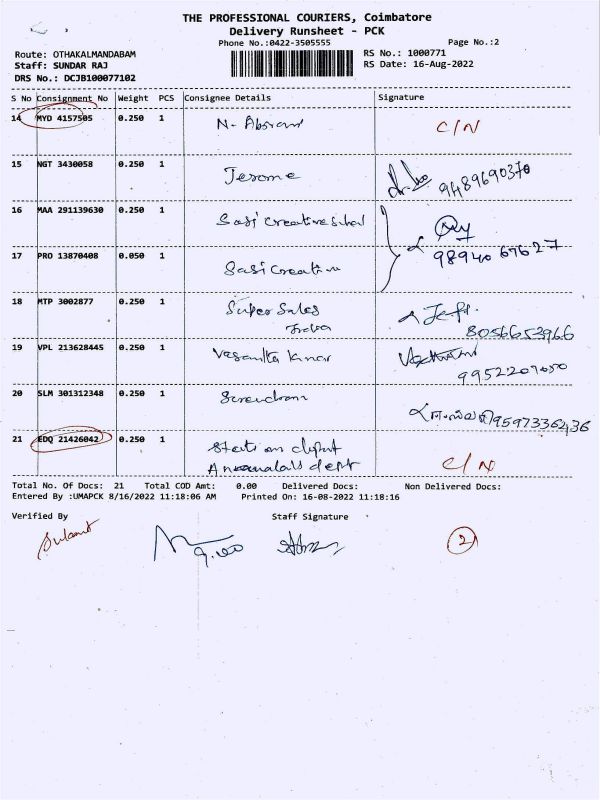 THE PROFESSIONAL COURIERS, Coimbatore
Delivery Runsheet - PCK
Phone No.:0422-3505555
Page No.:2
Route: OTHAKALMANDABAM
RS No.: 1000771
Staff: SUNDAR RAJ
RS Date: 16-Aug-2022
DRS No.: DCJB100077102
S No Consignment No Weight PCS Consignee Details Signature
14 MYD 4157505 0.250 1 N- C/N
15 NGT 3430058 0.250 1 Jerome 9489690370
16 MAA 291139630 0.250 1 Sasi Creative
17 PRO 13870408 0.050 1 Sasi Creative 98940 67627
18 MTP 3002877 0.250 1 Super Sales
India 8056653966
19 VPL 213628445 0.250 1 Vasantha Kumar
9952207050
20 SLM 301312348 0.250 1 9597336236
21 EDQ 21426042 0.250 1
dept C/N
Total No. Of Docs: 21 Total COD Amt: 0.00 Delivered Docs: Non Delivered Docs:
Entered By :UMAPCK 8/16/2022 11:18:06 AM Printed On: 16-08-2022 11:18:16
Verified By Staff Signature
2